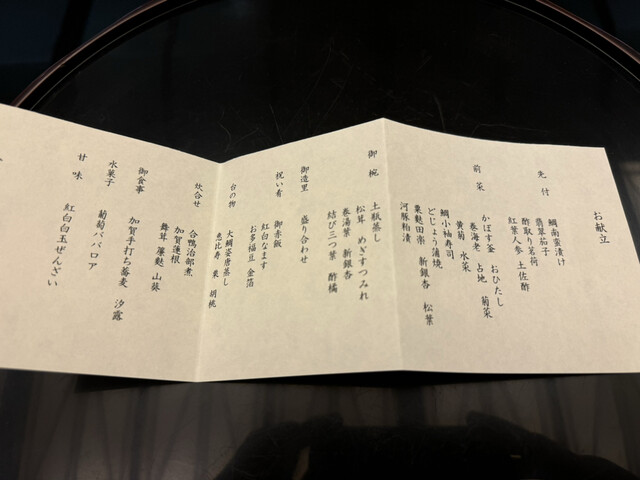 お献立
先付
鯛南蛮漬け
翡翠茄子
酢取り茗荷
紅葉人参 土佐酢
前菜
かぼす釜 おひたし
巻海老 占地 菊菜
黄菊 水菜
鯛小袖寿司
どじょう蒲焼
粟麩田楽 新銀杏 松葉
河豚粕漬
御椀
土瓶蒸し
松茸 めぎすつみれ
巻湯葉 新銀杏
結び三つ葉 酢橘
御造里
盛り合わせ
祝い肴
御赤飯
紅白なます
お多福豆 金箔
台の物
大鯛姿唐蒸し
恵比寿 栗 胡桃
炊合せ
合鴨治部煮
加賀蓮根
舞茸 簾麩 山葵
御食事
加賀手打ち蕎麦 汐露
水菓子
葡萄ババロア
甘味
紅白白玉ぜんざい